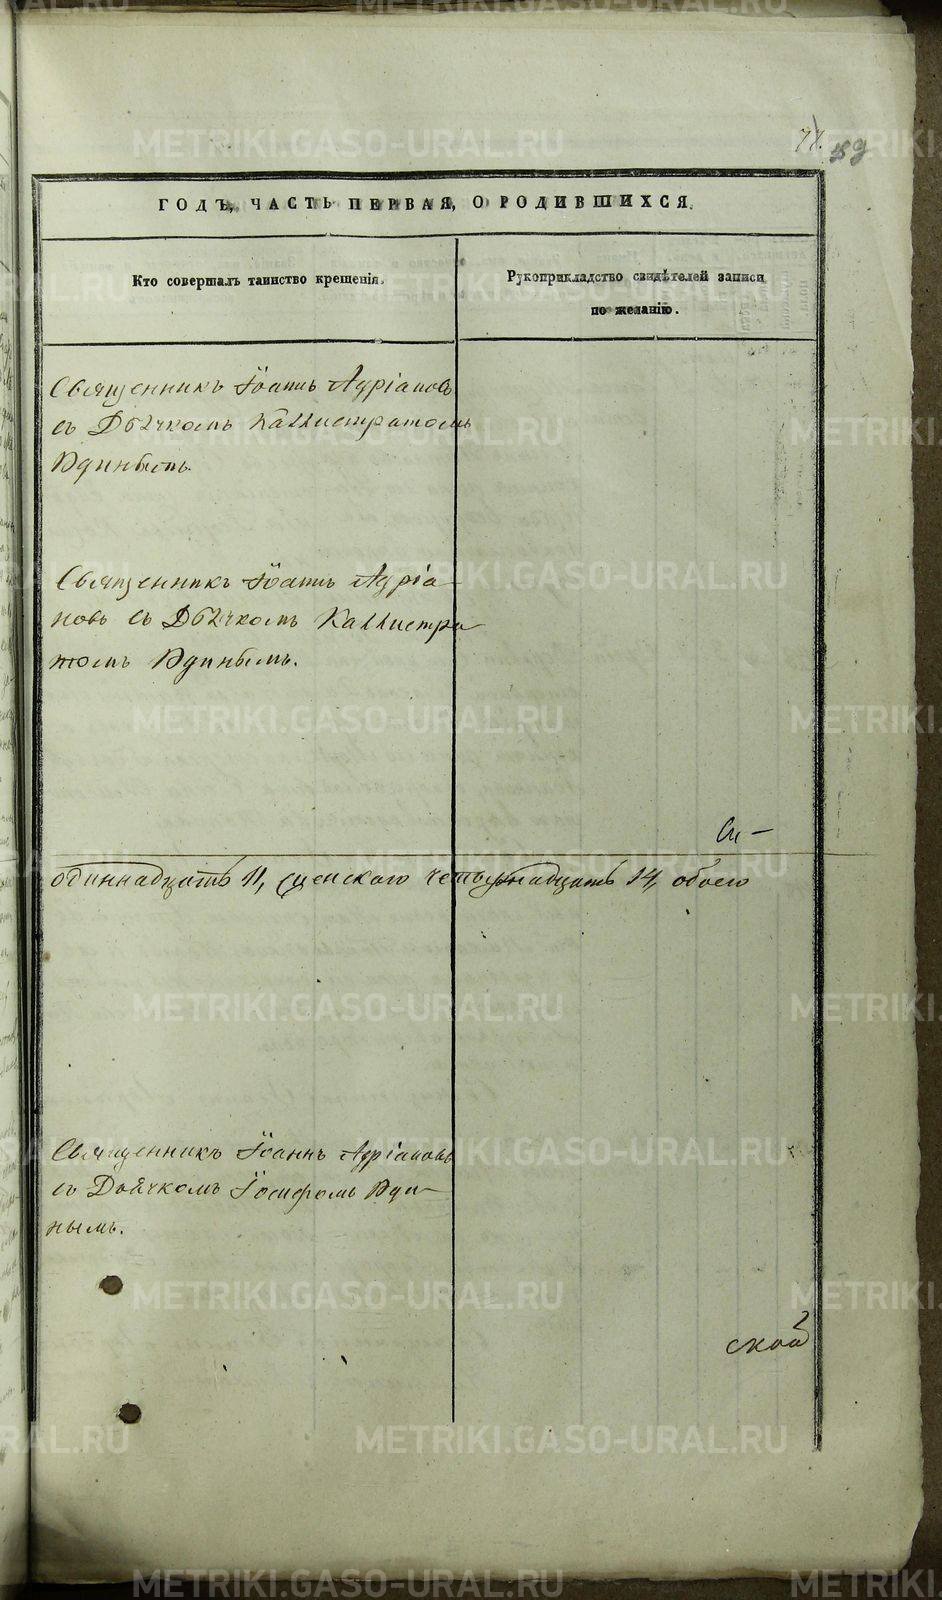 77. 89
ГОДЪ, ЧАСТЬ ПЕРВАЯ, О РОДИВШИХСЯ.
Кто совершалъ таинство крещенія.
Рукоприкладство свидѣтелей записи
по желанію.
Священникъ Іоаннъ Адріановъ
съ Дьячкомъ Каллистратомъ
Удинымъ.
Священникъ Іоаннъ Адріа-
новъ съ Дьячкомъ Каллистра-
томъ Удинымъ.
Си-
одиннадцать 11, женскаго четырнадцать 14, обоего
Священникъ Іоаннъ Адріановъ
съ Дьячкомъ Іосифомъ Уди-
нымъ.
ской
METRIKI.GASO-URAL.RU